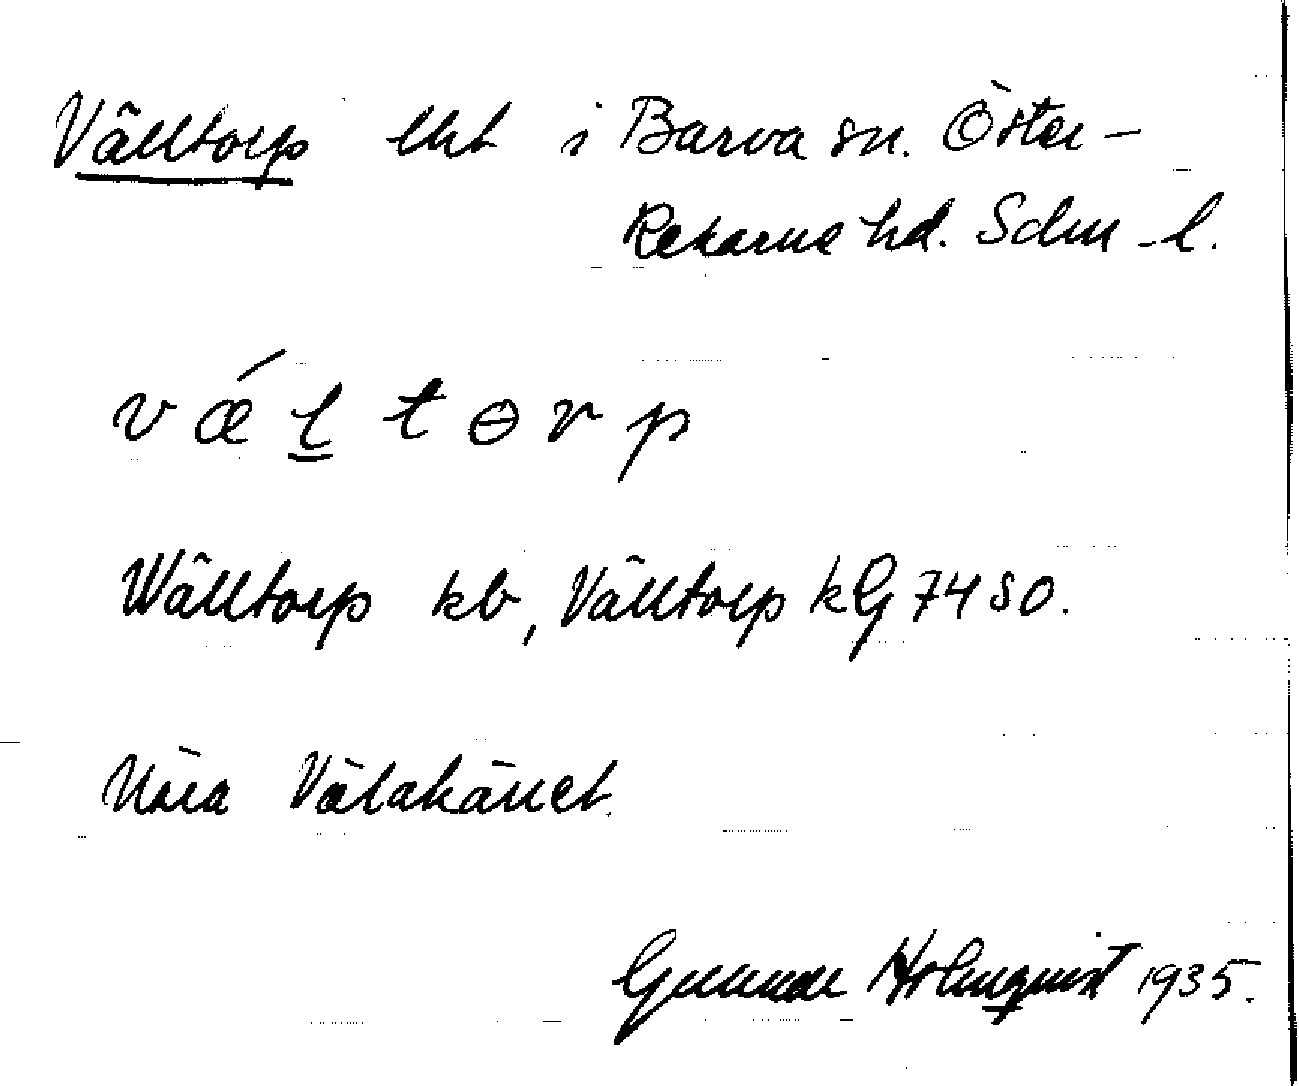 Välltorp lht i Barva sn. Öster-
Rekarne hd. Sdm-l.
v ǽ l̲ t ɵ r p
Wälltorp kb, Välltorp kG 74 SO.
Nära Välakärret.
Gunnar Holmquist 1935.